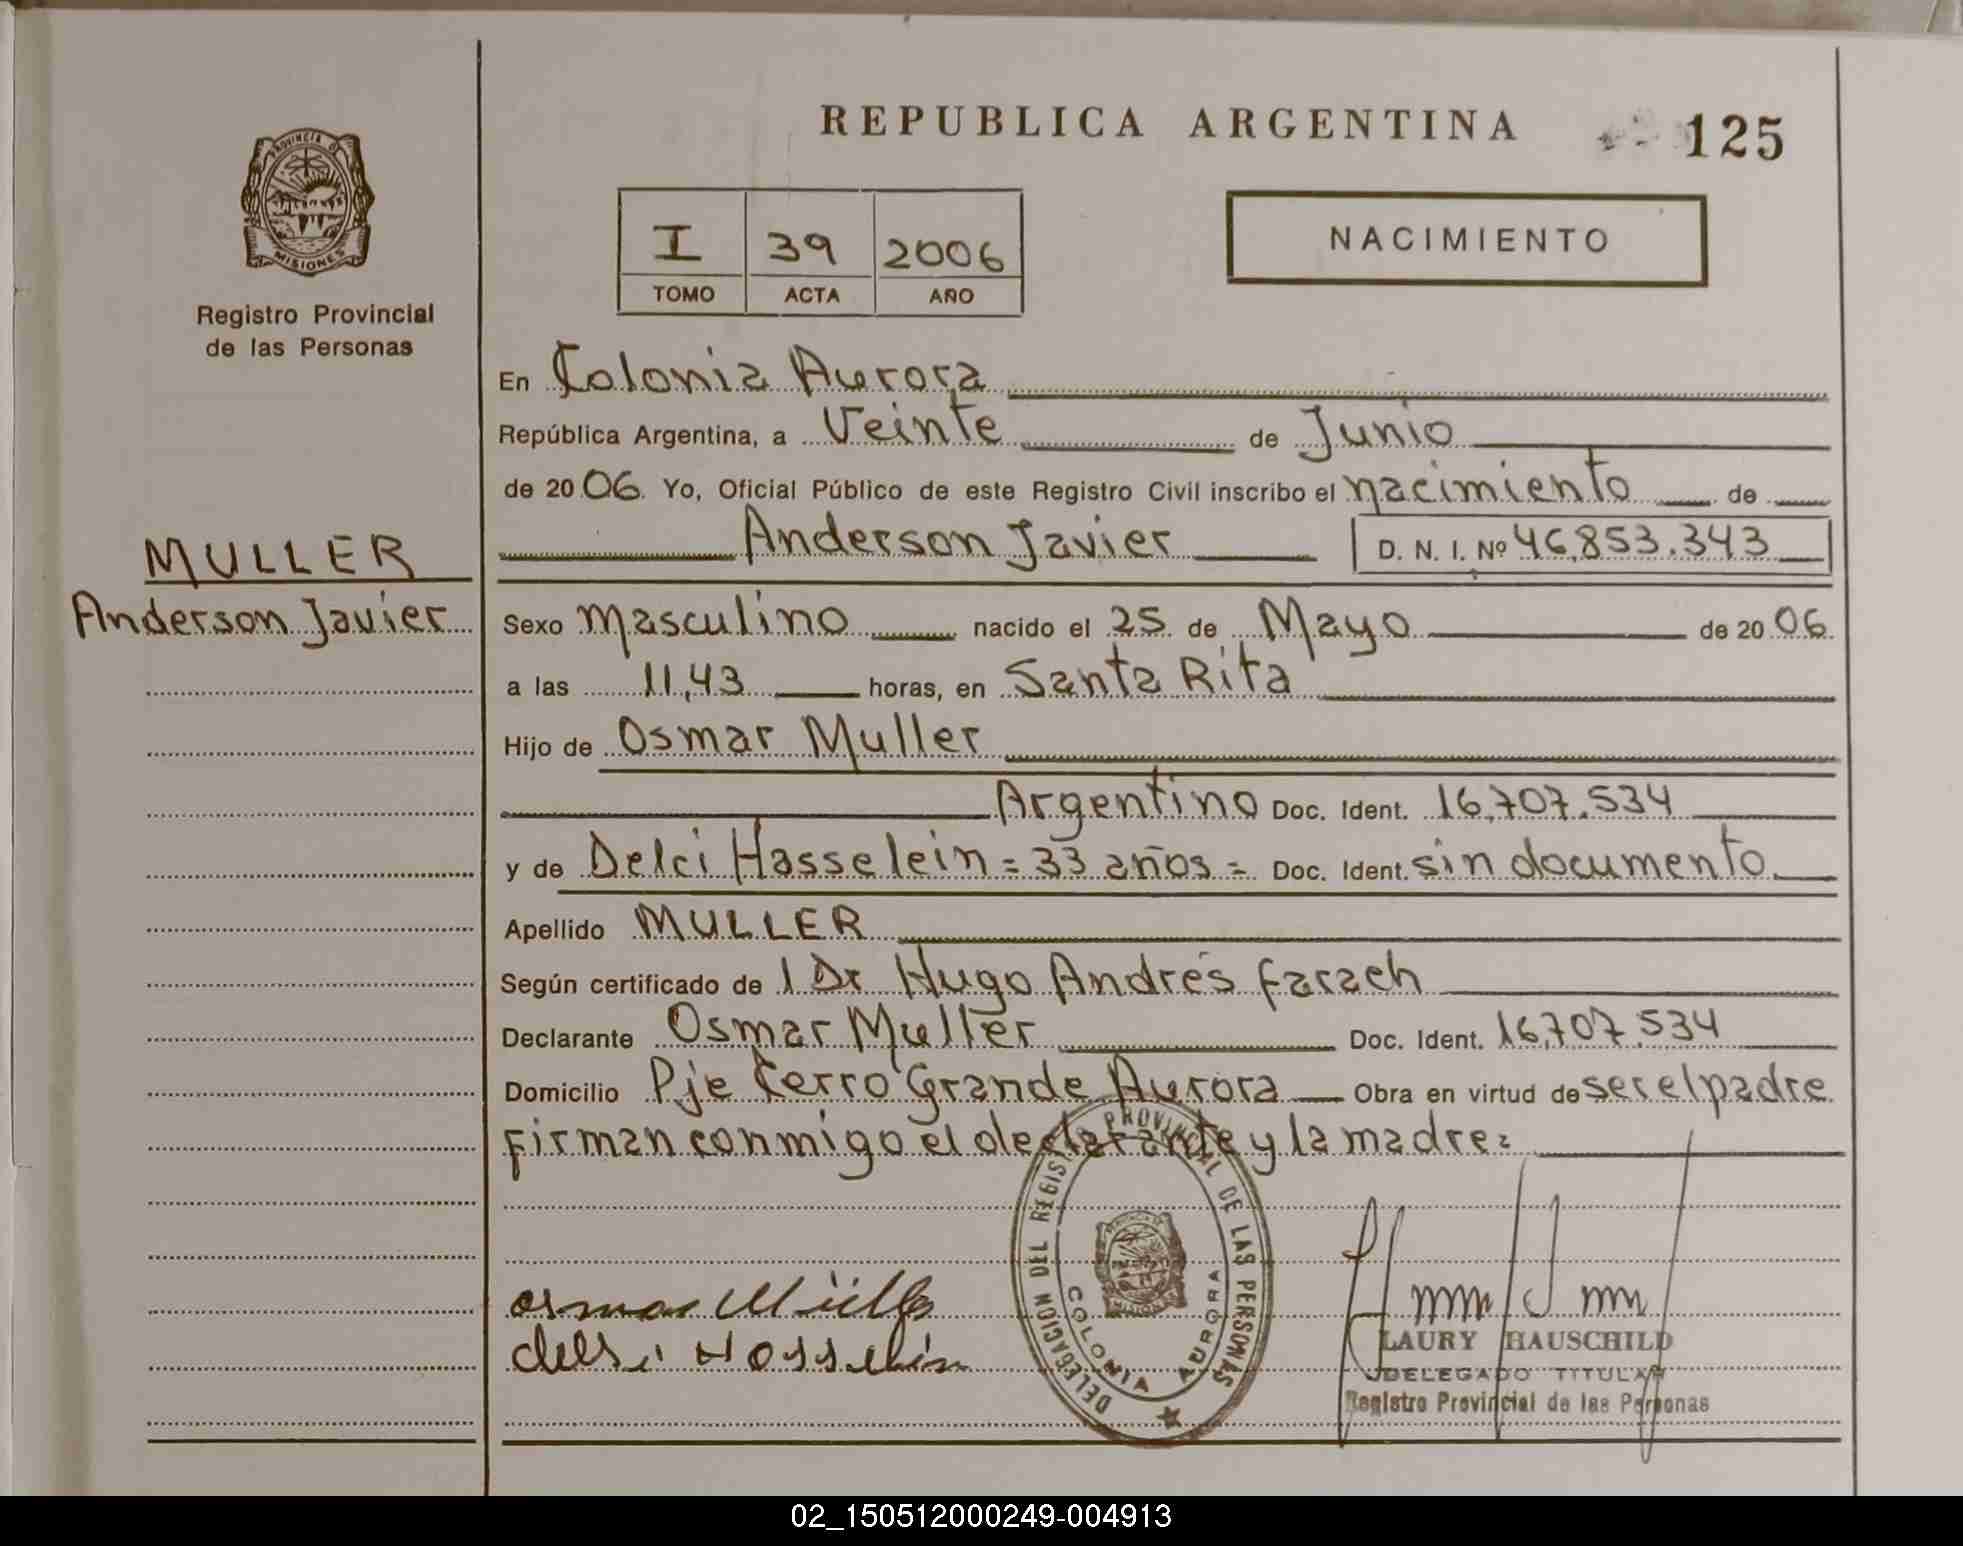 REPUBLICA ARGENTINA
125
PROVINCIA DE
MISIONES
Registro Provincial
de las Personas
I 39 2006
TOMO ACTA AÑO
NACIMIENTO
En Colonia Aurora
República Argentina, a Veinte de Junio
de 2006. Yo, Oficial Público de este Registro Civil inscribo el nacimiento de
Anderson Javier D. N. I. Nº 46,853.343
MULLER
Anderson Javier
Sexo masculino nacido el 25 de Mayo de 2006.
a las 11,43 horas, en Santa Rita
Hijo de Osmar Muller
Argentino Doc. Ident. 16,707.534
y de Delci Hasselein = 33 años = Doc. Ident. sin documento
Apellido MULLER
Según certificado de 1 Dr Hugo Andrés Farach
Declarante Osmar Muller Doc. Ident. 16,707.534
Domicilio Pje Cerro Grande Aurora Obra en virtud de ser el padre
firman conmigo el declarante y la madre=
osmar Müller
delsi Hosselein
DELEGACION DEL REGISTRO PROVINCIAL DE LAS PERSONAS
COLONIA AURORA
MISIONES
LAURY HAUSCHILD
DELEGADO TITULAR
Registro Provincial de las Personas
02_150512000249-004913